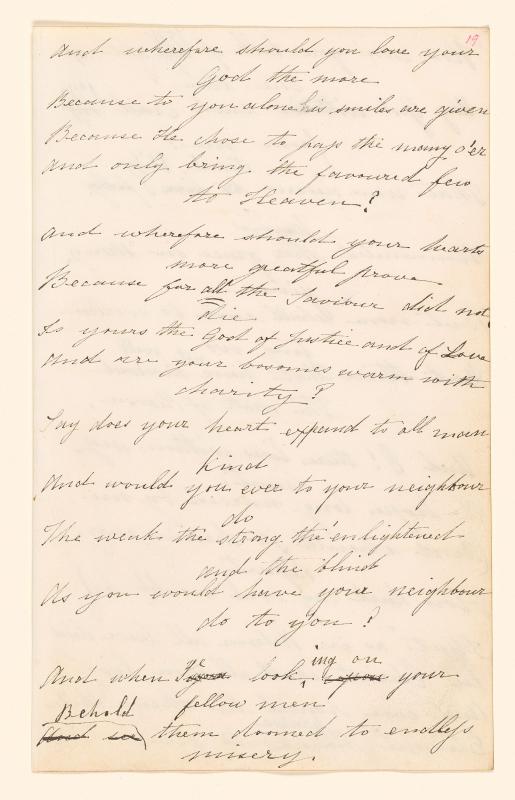 19
And wherefore should you love your
God the more
Because to you alone his smiles are given
Because He chose to pass the many o'er
And only bring the favoured few
to Heaven?
And wherefore should your hearts
more greatful prove
Because for all the Saviour did not
die
Is yours the God of Justice and of Love
And are your bosomes warm with
charity?
Say does your heart expand to all man
kind
And would you ever to your neighbour
do
The weak the strong the enlightened
and the blind
As you would have your neighbour
do to you?
And when Ye looking on your
fellow men
Behold them doomed to endless
misery.